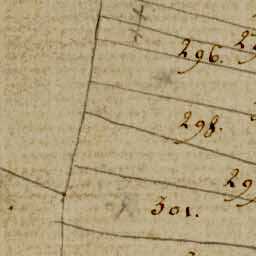 296.
298.
29
301.